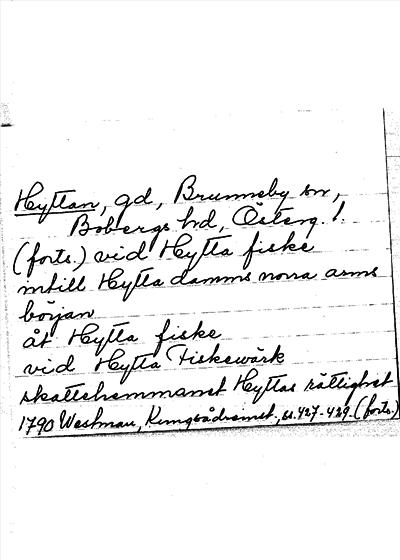 Hyttan, gd, Brunneby sn,
Bobergs hd, Österg. l.
(forts.) vid Hytta fiske
intill Hytta damms norra arms
början
åt Hytta fiske
vid Hytta Fiskewärk
skattehemmanet Hyttas rättighet
1790 Westman, Kungsådremet, s. 427-429. (forts.)